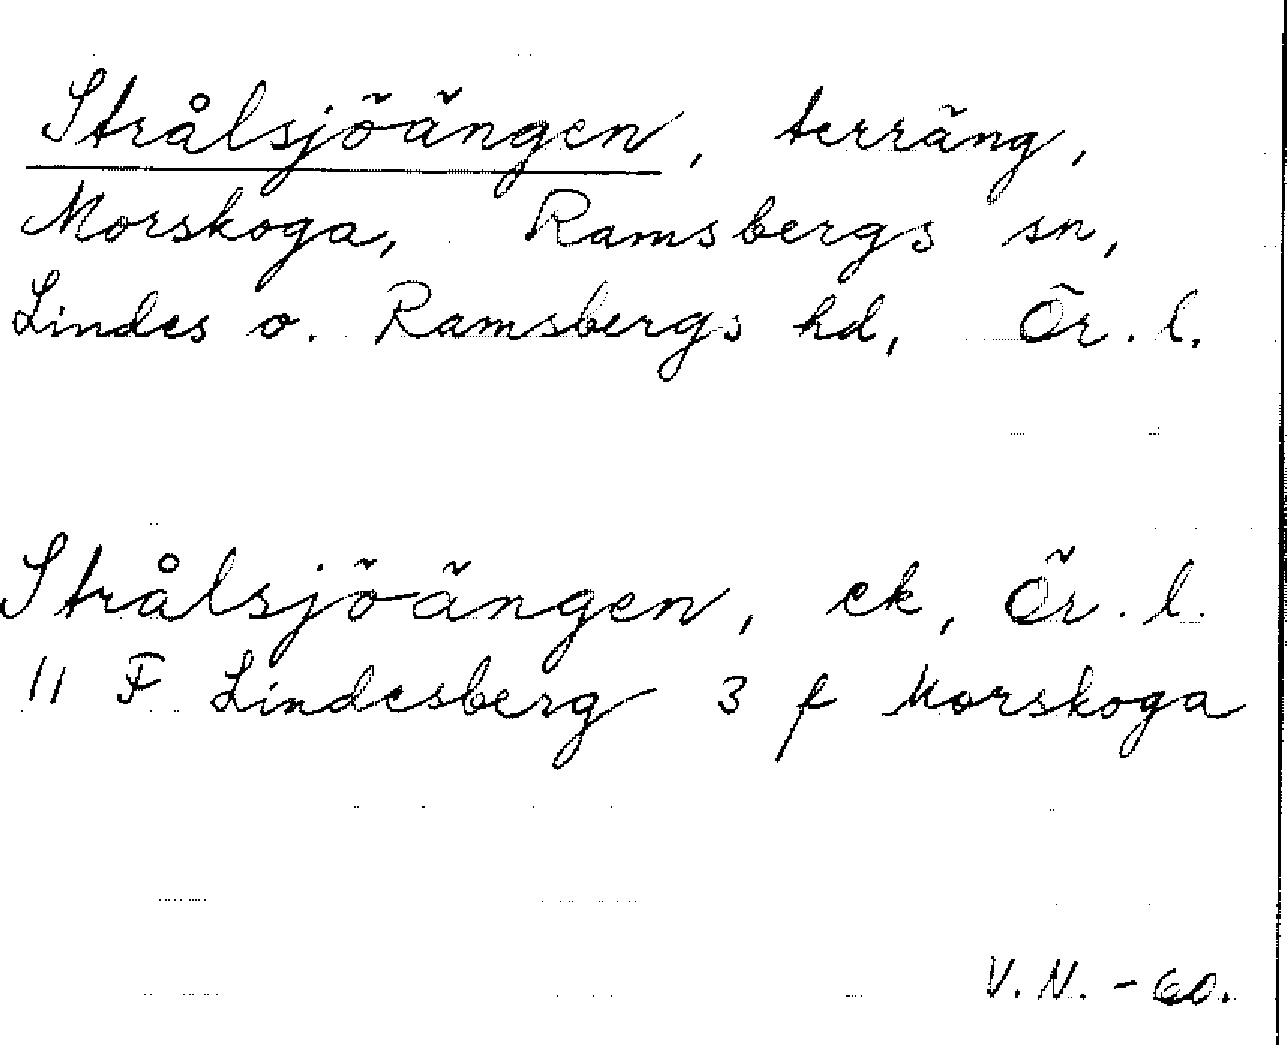 Strålsjöängen, terräng,
Morskoga, Ramsbergs sn,
Lindes o. Ramsbergs hd, Ör. l.
Strålsjöängen, ek, Ör. l.
11 F Lindesberg 3 f Morskoga
V. N. - 60.